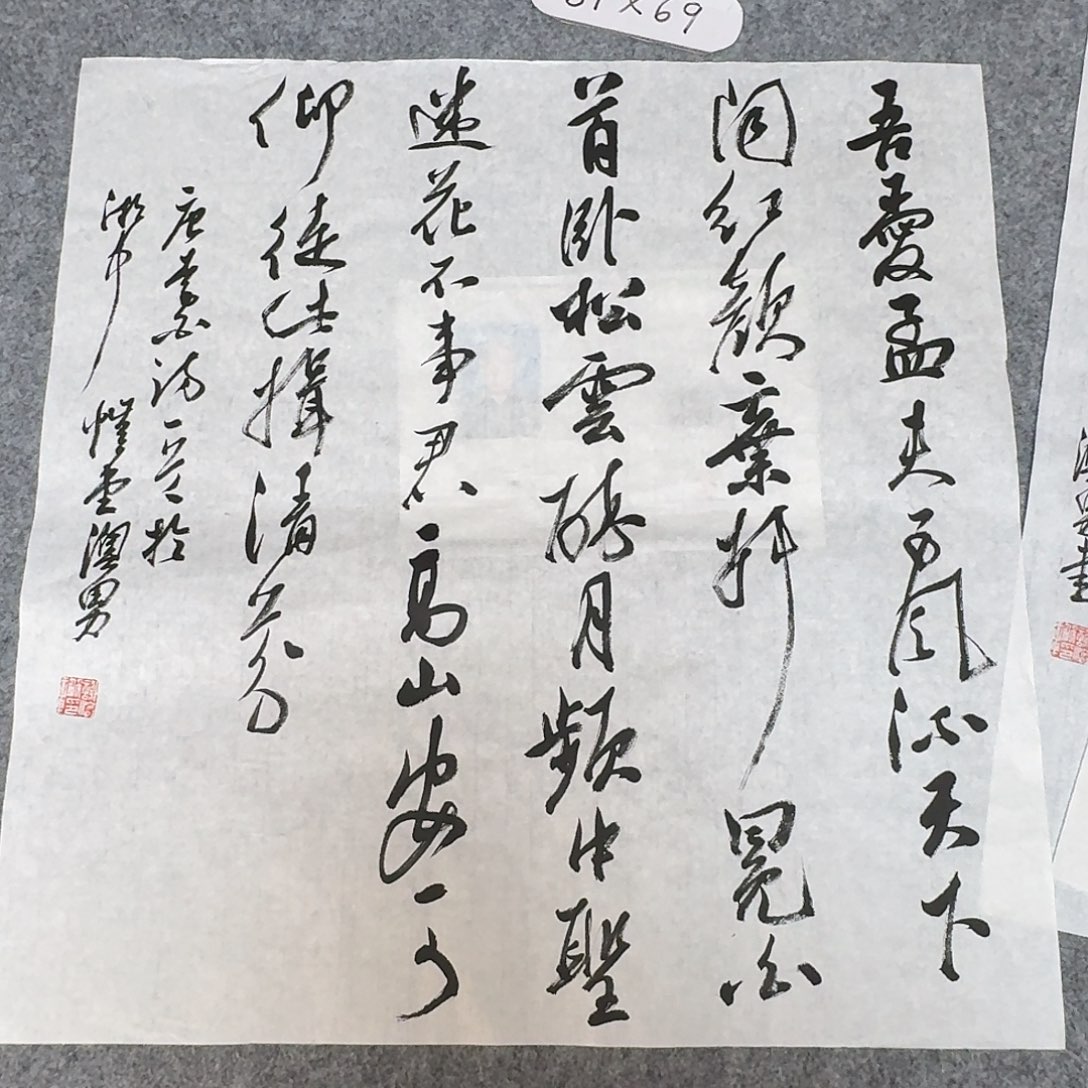 ×69
吾愛孟夫子風流天下
聞紅顔棄軒冕白
首卧松雲醉月頻中聖
迷花不事君高山安可
仰徒此揖清芬
唐李白詩一首於
湘中
男
書